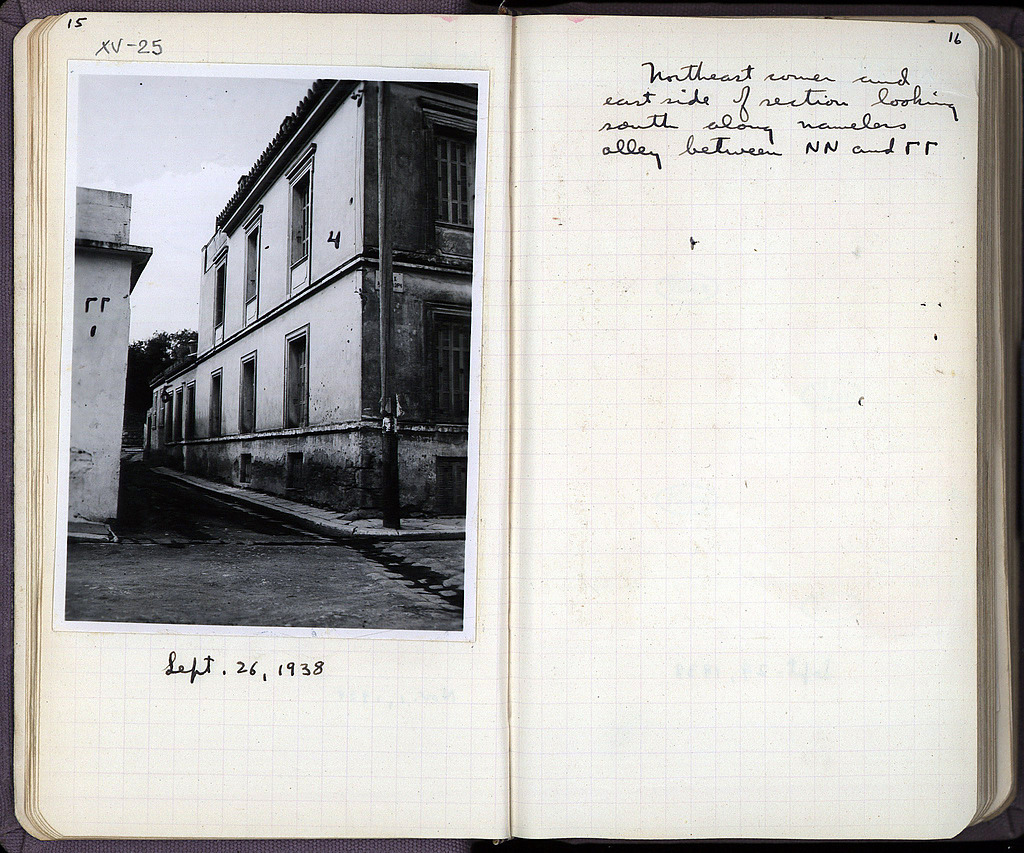 15
XV-25
ΓΓ
4
Sept. 26, 1938
16
Northeast corner and
east side of section looking
south along nameless
alley between NN and ΓΓ